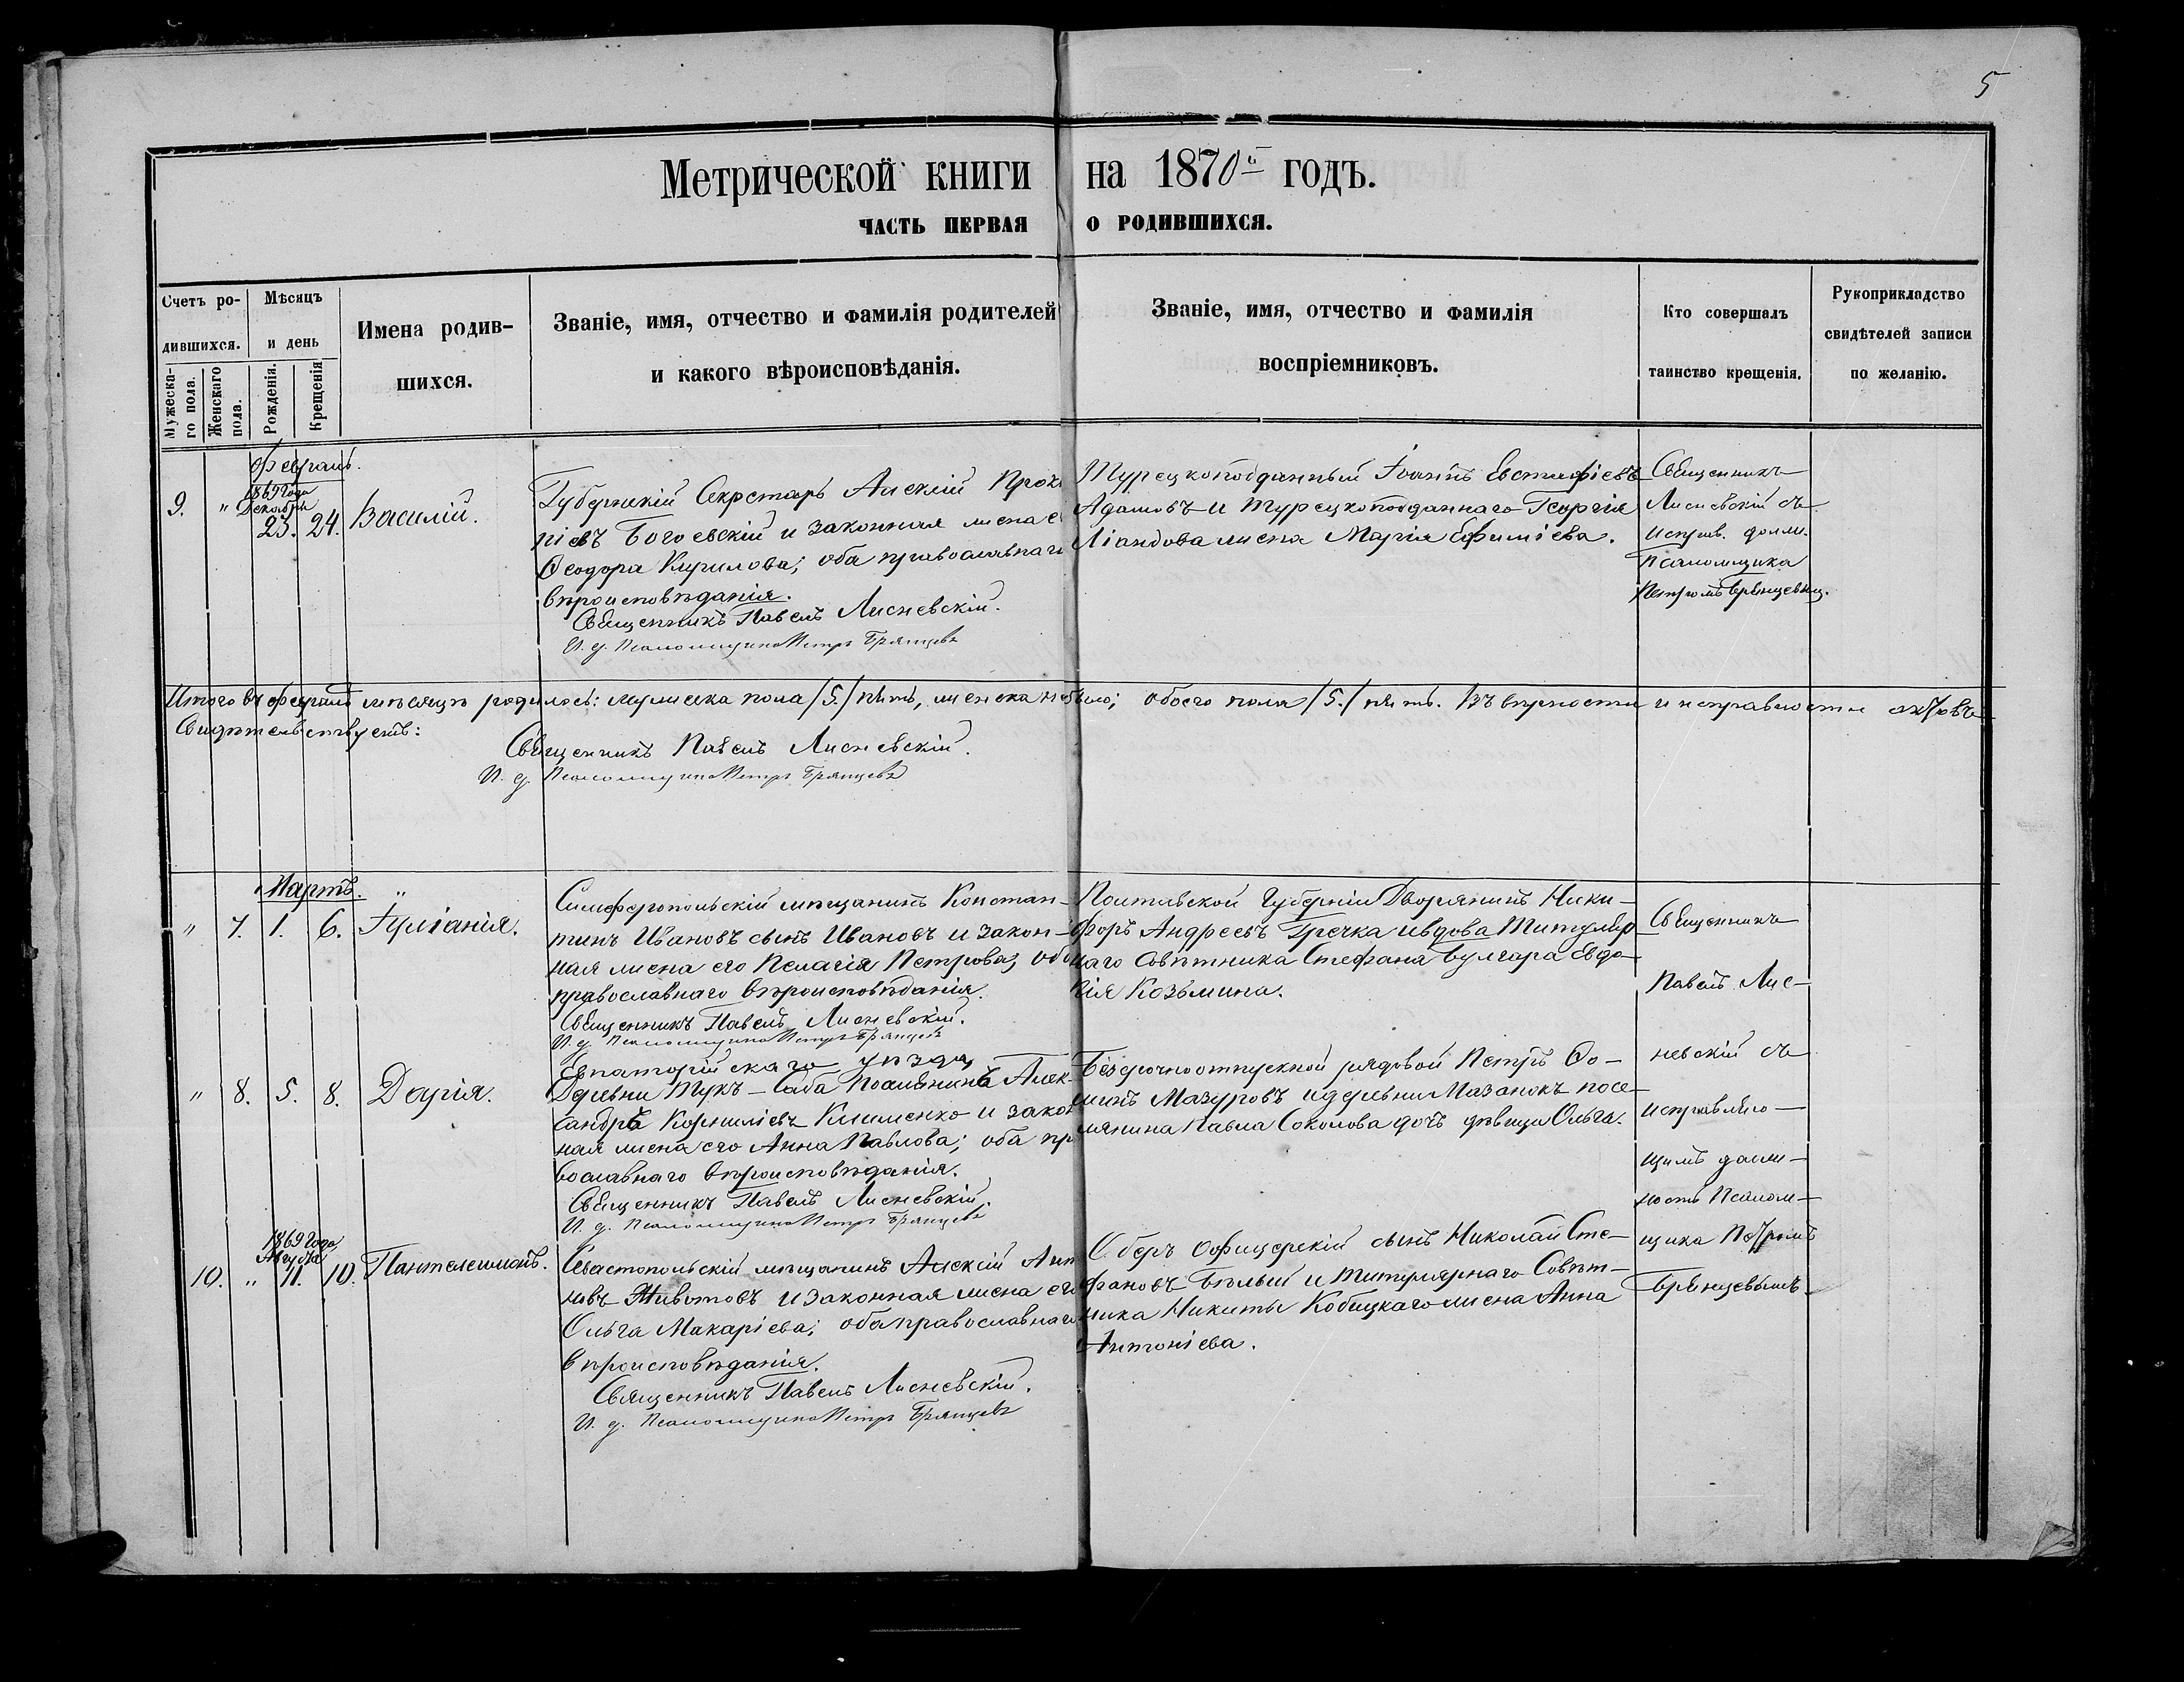 5
Метрической книги на 1870й годъ.
ЧАСТЬ ПЕРВАЯ О РОДИВШИХСЯ.
Счетъ ро-
дившихся.
Мужеска-
го пола.
Женскаго
пола.
Мѣсяцъ
и день
Рожденія.
Крещенія
Имена родив-
шихся.
Званіе, имя, отчество и фамилія родителей
и какого вѣроисповѣданія.
Званіе, имя, отчество и фамилія
воспріемниковъ.
Кто совершалъ
таинство крещенія.
Рукоприкладство
свидѣтелей записи
по желанію.
Февраль.
9. " 1869 года
Декабря
23. 24. Василій.
Губернскій Секретарь Алексій Прок
піевъ Богоевскій и законная жена е
Ѳеодора Кирилова; оба православнаго
вѣроисповѣданія.
Священникъ Павелъ Лисневскій.
И. д. Псаломщика Петръ Брянцевъ
Турецкоподданный Іоаннъ Евстафіевъ
Адамовъ и турецкоподданнаго Георгія
Ліандова жена Марія Ефиміева.
Священникъ
Лисневскій съ
исправ. долж.
псаломщика
Петромъ Брянцевым.
Итого въ февралѣ мѣсяцѣ родилось: мужеска пола /5./ пять, женска не было; обоего пола /5./ пять. Въ вѣрности и исправности актовъ
Свидѣтельствуетъ:
Священникъ Павелъ Лисневскій.
И. д. Псаломщика Петръ Брянцевъ
Мартъ. "
" 7. 1. 6. Іуліанія.
Симферопольскій мѣщанинъ Констан-
тинъ Ивановъ сынъ Ивановъ и закон-
ная жена его Пелагія Петрова; оба
православнаго вѣроисповѣданія.
Священникъ Павелъ Лисневскій.
И. д. Псаломщика Петръ Брянцевъ
Полтавской Губерніи Дворянинъ Ники-
форъ Андреевъ Гречка и вдова Титуляр-
наго Совѣтника Стефана Булгара Евдо-
кія Козьмина.
Священникъ
Павелъ Лис-
невскій съ
исправляю-
щимъ долж-
ность Псалом-
щика Петромъ
Брянцевымъ
" 8. 5. 8. Дарія.
Евпаторійскаго уѣзда
Деревни Тукъ-Саба Поселянинъ Алек-
сандръ Корниліевъ Клименко и закон
ная жена его Анна Павлова; оба пр
вославнаго вѣроисповѣданія.
Священникъ Павелъ Лисневскій.
И. д. Псаломщика Петръ Брянцевъ
Безсрочноотпускной рядовой Петръ Ѳо-
минъ Мазуровъ и деревни Мазанокъ посе-
лянина Павла Соколова дочь дѣвица Ольга.
1869 года
Августа
10. " 11. 10. Пантелеимонъ.
Севастопольскій мѣщанинъ Алексій Ант
новъ Животовъ и законная жена его
Ольга Макаріева; оба православнаго
вѣроисповѣданія.
Священникъ Павелъ Лисневскій.
И. д. Псаломщика Петръ Брянцевъ
Оберъ Офицерскій сынъ Николай Сте-
фановъ Бѣлый и титулярнаго Совѣт-
ника Никиты Кобицкаго жена Анна
Антоніева.